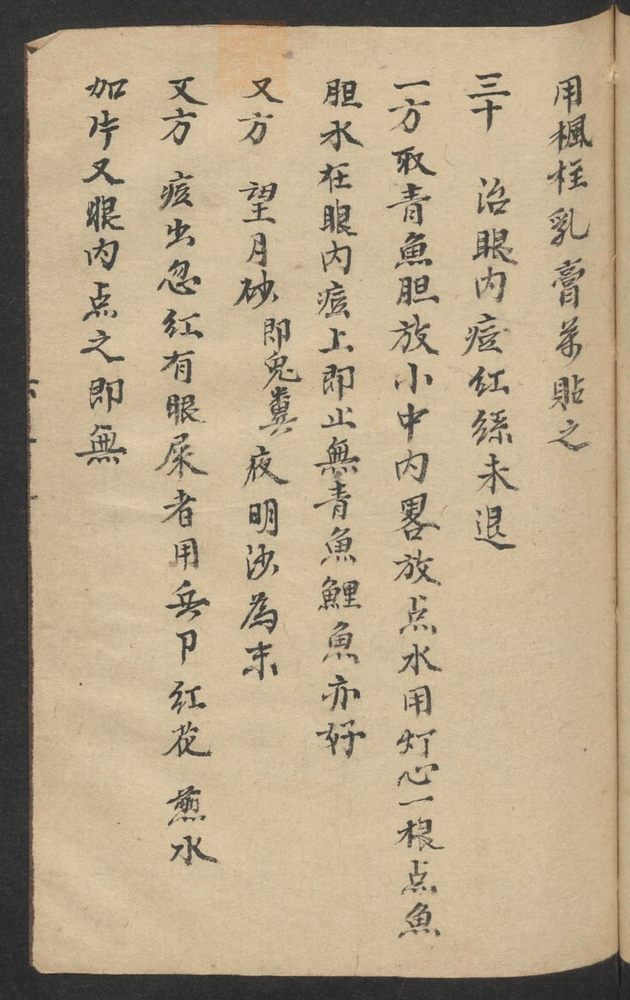 用楓柱乳膏茶貼之
三十 治眼内痘紅絲未退
一方取青魚胆放小中内畧放点水用灯心一根点魚
胆水在眼内痘上即止無青魚鯉魚亦好
又方 望月砂即兔糞夜明沙為末
又方 痘出忽紅有眼屎者用兵卩紅花 煎水
加片又眼内点之即無